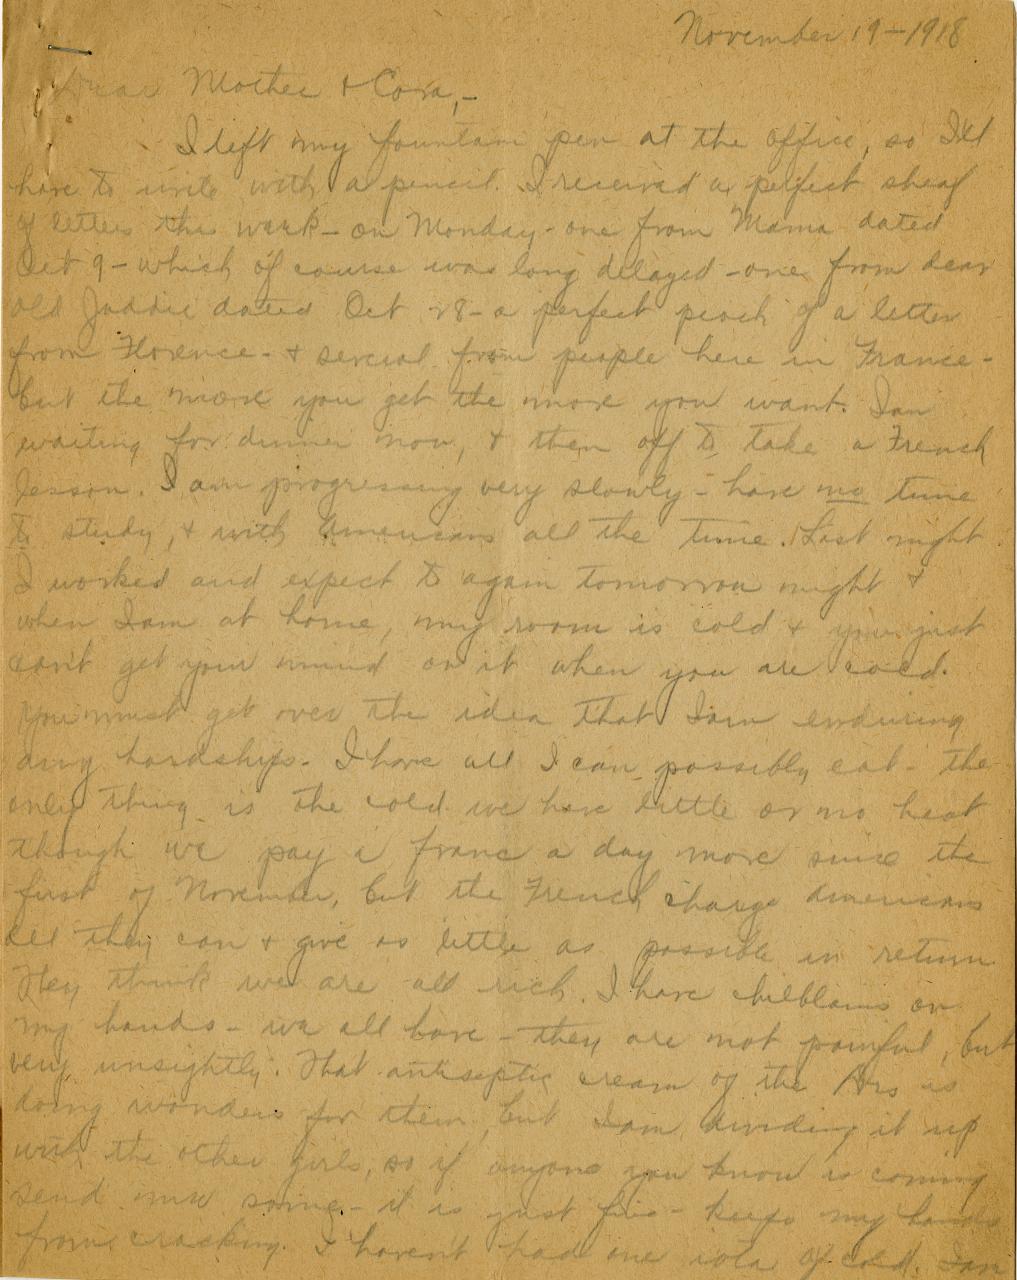 November 19-1918
Dear Mother & Cora,-
I left my fountain pen at the office, so I'll
have to write with a pencil. I received a perfect sheaf
of letters this week - on Monday - one from Mama dated
Oct 9 - which of course was long delayed - one from dear
old Jaddie dated Oct 28 - a perfect peach of a letter
from Florence - & several from people here in France -
but the more you get the more you want. I am
waiting for dinner now, & then off to take a French
lesson. I am progressing very slowly - have no time
to study, & with Americans all the time. Last night
I worked and expect to again tomorrow night &
when I am at home, my room is cold & you just
can't get your mind on it when you are cold.
You must get over the idea that I am enduring
any hardships. I have all I can possibly eat - the
only thing is the cold we have little or no heat
though we pay a franc a day more since the
first of November, but the French charge Americans
all they can & give as little as possible in return
They think we are all rich. I have chilblains on
my hands - we all have - they are not painful, but
very unsightly. That antiseptic cream of the is
doing wonders for them, but I am dividing it up
with the other girls, so if anyone you know is coming
send me some - it is just fine - keeps my hands
from cracking. I haven't had one iota of cold. I am